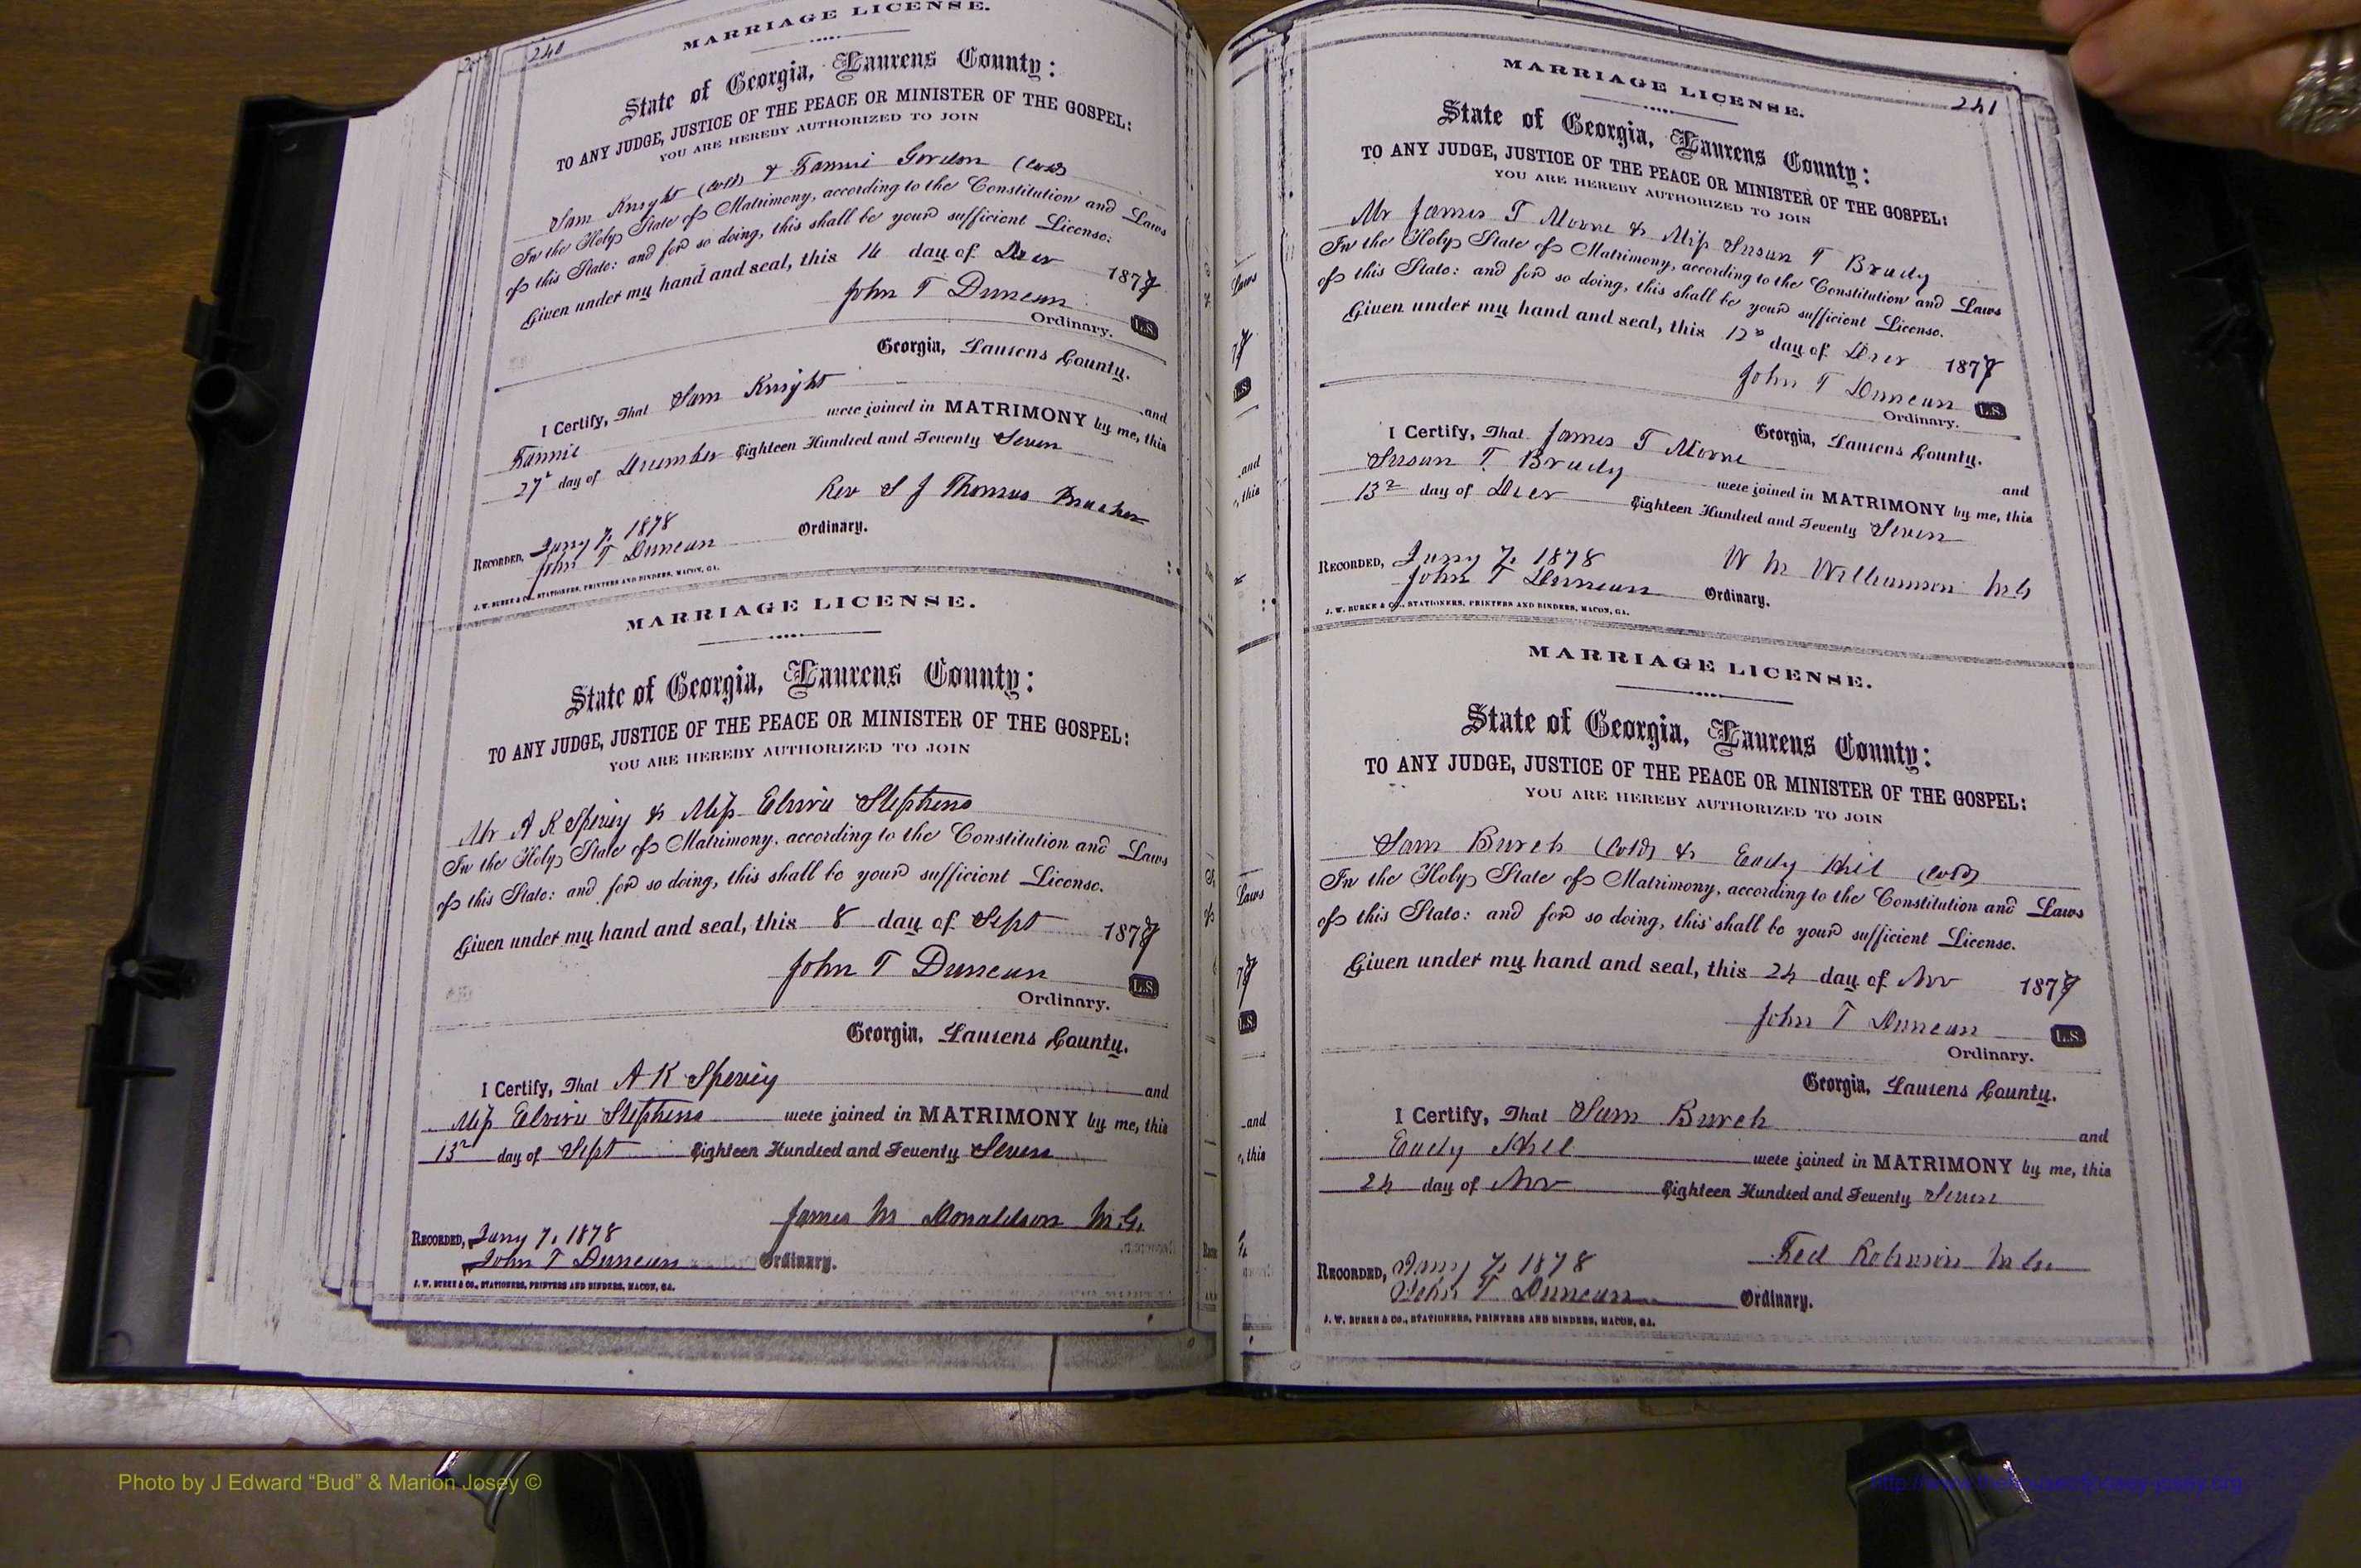 240
MARRIAGE LICENSE.
State of Georgia, Laurens County:
TO ANY JUDGE, JUSTICE OF THE PEACE OR MINISTER OF THE GOSPEL:
YOU ARE HEREBY AUTHORIZED TO JOIN
Sam Knight (Cold) & Fannie Gordon (Cold)
In the Holy State of Matrimony, according to the Constitution and Laws
of this State: and for so doing, this shall be your sufficient License.
Given under my hand and seal, this 14 day of Decr 1877
John T Duncan
Ordinary. L.S.
Georgia, Laurens County.
I Certify, That Sam Knight and
Fannie were joined in MATRIMONY by me, this
27 day of December Eighteen Hundred and Seventy Seven
Rev S J Thomas
RECORDED, Jany 7, 1878
John T Duncan Ordinary.
J. W. BURKE & CO., STATIONERS, PRINTERS AND BINDERS, MACON, GA.
MARRIAGE LICENSE.
State of Georgia, Laurens County:
TO ANY JUDGE, JUSTICE OF THE PEACE OR MINISTER OF THE GOSPEL:
YOU ARE HEREBY AUTHORIZED TO JOIN
Mr A K Spivey & Miss Elvira Stephens
In the Holy State of Matrimony, according to the Constitution and Laws
of this State: and for so doing, this shall be your sufficient License.
Given under my hand and seal, this 8 day of Sept 1877
John T Duncan
L.S.
Ordinary.
Georgia, Laurens County.
I Certify, That A K Spivey and
Miss Elvira Stephens were joined in MATRIMONY by me, this
13 day of Sept Eighteen Hundred and Seventy Seven
James M Donaldson M.G.
RECORDED, Jany 7, 1878
John T Duncan Ordinary.
J. W. BURKE & CO., STATIONERS, PRINTERS AND BINDERS, MACON, GA.
241
MARRIAGE LICENSE.
State of Georgia, Laurens County:
TO ANY JUDGE, JUSTICE OF THE PEACE OR MINISTER OF THE GOSPEL:
YOU ARE HEREBY AUTHORIZED TO JOIN
Mr James T & Miss Susan T Brady
In the Holy State of Matrimony, according to the Constitution and Laws
of this State: and for so doing, this shall be your sufficient License.
Given under my hand and seal, this 12 day of Decr 1877
John T Duncan L.S.
Ordinary.
Georgia, Laurens County.
I Certify, That James T and
Susan T. Brady were joined in MATRIMONY by me, this
13 day of Decr Eighteen Hundred and Seventy Seven
W M Williamson M G
RECORDED, Jany 7, 1878
John T Duncan Ordinary.
J. W. BURKE & CO., STATIONERS, PRINTERS AND BINDERS, MACON, GA.
MARRIAGE LICENSE.
State of Georgia, Laurens County:
TO ANY JUDGE, JUSTICE OF THE PEACE OR MINISTER OF THE GOSPEL:
YOU ARE HEREBY AUTHORIZED TO JOIN
Sam Burch (Cold) & Eady (Cold)
In the Holy State of Matrimony, according to the Constitution and Laws
of this State: and for so doing, this shall be your sufficient License.
Given under my hand and seal, this 24 day of Nov 1877
John T Duncan L.S.
Ordinary.
Georgia, Laurens County.
I Certify, That Sam Burch and
Eady were joined in MATRIMONY by me, this
24 day of Nov Eighteen Hundred and Seventy Seven
Fed Robinson M G
RECORDED, Jany 7, 1878
John T Duncan Ordinary.
J. W. BURKE & CO., STATIONERS, PRINTERS AND BINDERS, MACON, GA.
Photo by J Edward “Bud” & Marion Josey ©
http://www.thehouseofjossey-josey.org